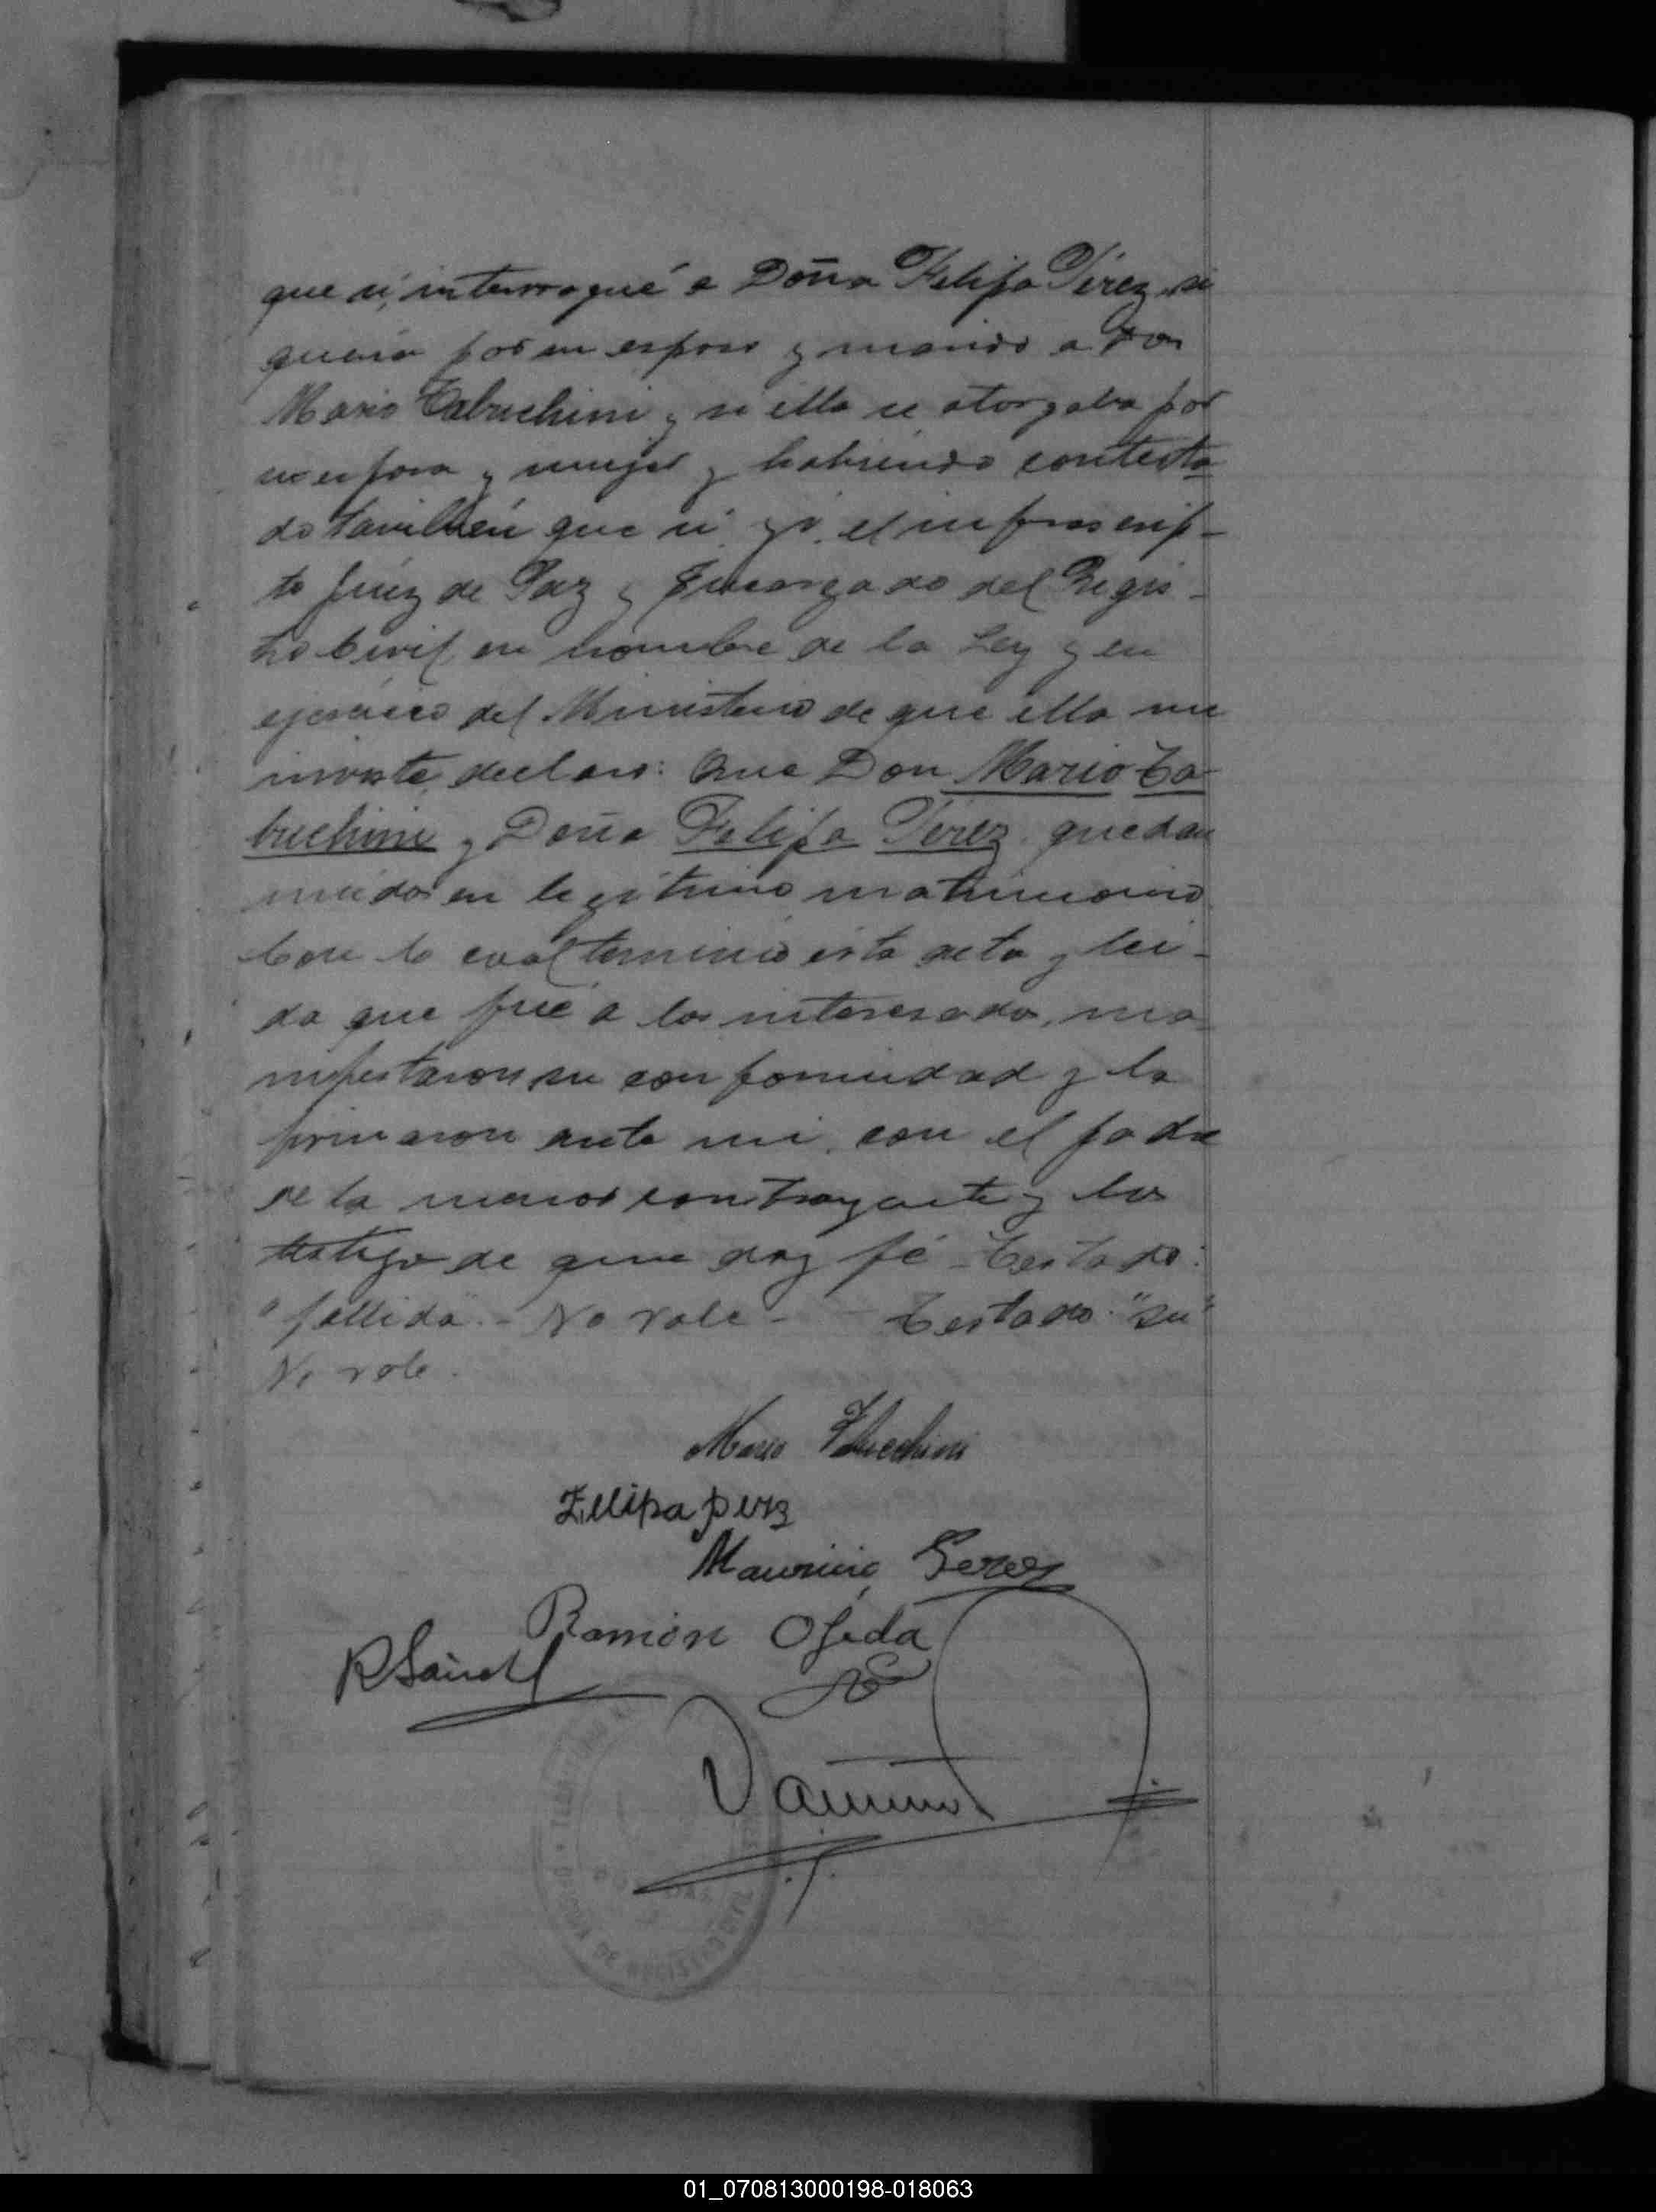 que sí, interrogué a Doña Felipa Pérez, si
queria por su esposo y marido a Don
Mario Tabuchini y si ella se otorgaba por
su esposa y mujer y habiendo contesta
do también que sí yó, el infrascrip-
to Juez de Paz y Encargado del Regis-
tro Civil, en nombre de la Ley y en
ejercicio del Ministerio de que ella me
inviste, declaro: Que Don Mario Ta
buchini y Doña Felipa Pérez quedan
unidos en legítimo matrimonio
Con lo cual terminó ésta acta y lei-
da que fué a los interesados, ma
nifestaron su conformidad y la
firmaron ante mi, con el padre
de la menor contrayente y los
testigos de que doy fé - Testado:
"fallida" - No vale - Testado: "su"
No vale.
Mario Tabucchini
Felipa perz
Mauricio Perez
Ramón Ojeda